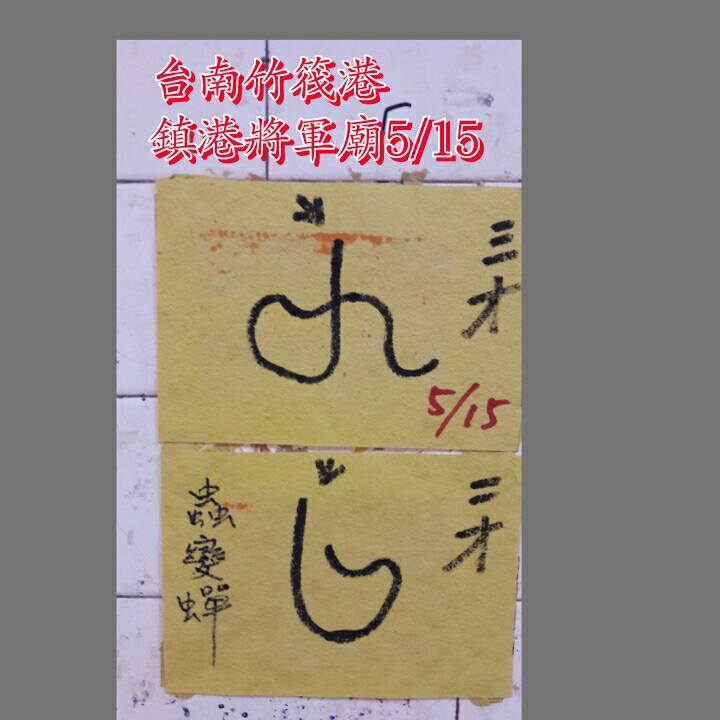 台南竹筏港
鎮港將軍廟5/15
三才
5/15
二才
蟲變蟬